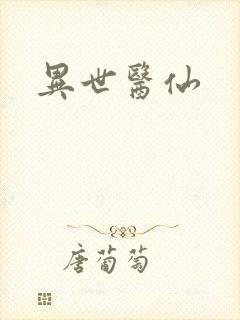 異世醫仙
唐葡萄